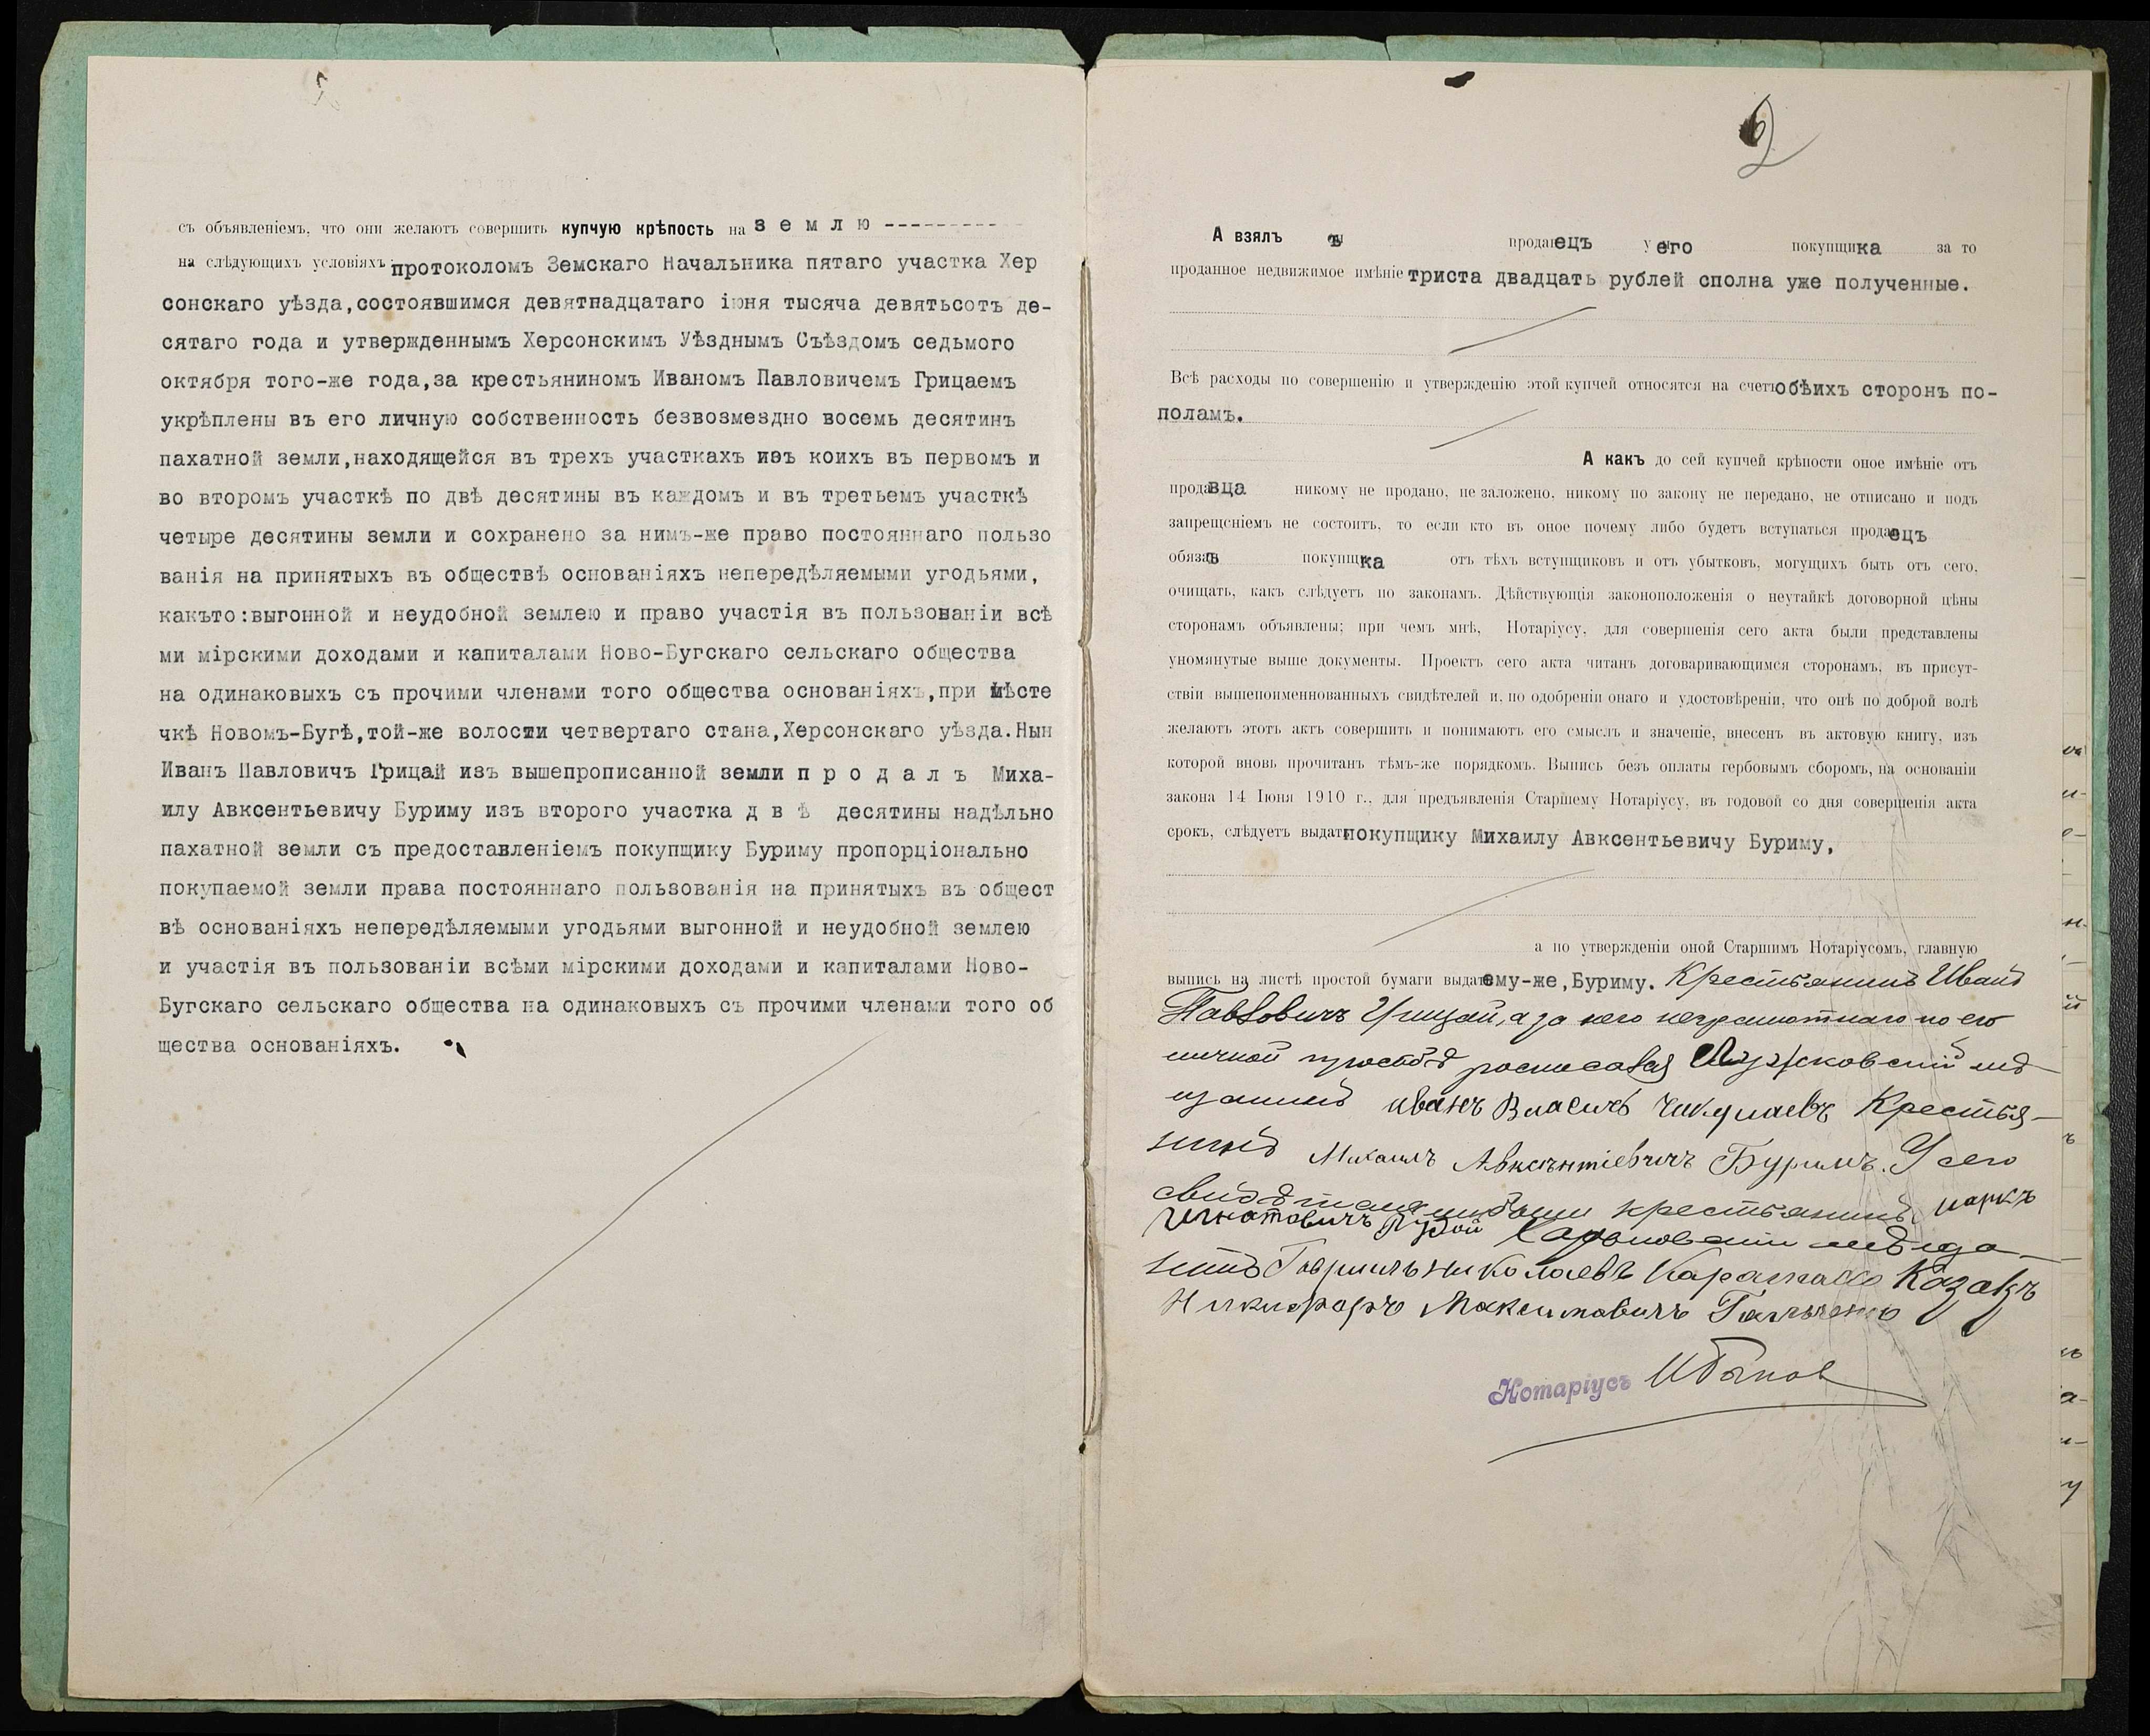 съ объявленіемъ, что они желаютъ совершить купчую крѣпость на з е м л ю ---------
на слѣдующихъ условіяхъ: протоколомъ Земскаго Начальника пятаго участка Хер
сонскаго уѣзда,состоявшимся девятнадцатаго іюня тысяча девятьсотъ де-
сятаго года и утвержденнымъ Херсонскимъ Уѣзднымъ Съѣздомъ седьмого
октября того-же года,за крестьяниномъ Иваномъ Павловичемъ Грицаемъ
укрѣплены въ его личную собственность безвозмездно восемь десятинъ
пахатной земли,находящейся въ трехъ участкахъ изъ коихъ въ первомъ и
во второмъ участкѣ по двѣ десятины въ каждомъ и въ третьемъ участкѣ
четыре десятины земли и сохранено за нимъ-же право постояннаго пользо
ванія на принятыхъ въ обществѣ основаніяхъ непередѣляемыми угодьями,
какъто:выгонной и неудобной землею и право участія въ пользованіи всѣ
ми мірскими доходами и капиталами Ново-Бугскаго сельскаго общества
на одинаковыхъ съ прочими членами того общества основаніяхъ,при мѣсте
чкѣ Новомъ-Бугѣ,той-же волости четвертаго стана,Херсонскаго уѣзда.Нын
Иванъ Павловичъ Грицай изъ вышепрописанной земли п р о д а л ъ Миха-
илу Авксентьевичу Буриму изъ второго участка д в ѣ десятины надѣльно
пахатной земли съ предоставленіемъ покупщику Буриму пропорціонально
покупаемой земли права постояннаго пользованія на принятыхъ въ общест
вѣ основаніяхъ непередѣляемыми угодьями выгонной и неудобной землею
и участія въ пользованіи всѣми мірскими доходами и капиталами Ново-
Бугскаго сельскаго общества на одинаковыхъ съ прочими членами того об
щества основаніяхъ.
2
А взялъ продавецъ у его покупщика за то
проданное недвижимое имѣніе триста двадцать рублей сполна уже полученные.
Всѣ расходы по совершенію и утвержденію этой купчей относятся на счетъ обѣихъ сторонъ по-
поламъ.
А какъ до сей купчей крѣпости оное имѣніе отъ
продавца никому не продано, не заложено, никому по закону не передано, не отписано и подъ
запрещеніемъ не состоитъ, то если кто въ оное почему либо будетъ вступаться продавецъ
обязанъ покупщика отъ тѣхъ вступщиковъ и отъ убытковъ, могущихъ быть отъ сего,
очищать, какъ слѣдуетъ по законамъ. Дѣйствующія законоположенія о неутайкѣ договорной цѣны
сторонамъ объявлены; при чемъ мнѣ, Нотаріусу, для совершенія сего акта были представлены
упомянутые выше документы. Проектъ сего акта читанъ договаривающимся сторонамъ, въ присут-
ствіи вышепоименнованныхъ свидѣтелей и, по одобреніи онаго и удостовѣреніи, что онѣ по доброй волѣ
желаютъ этотъ актъ совершить и понимаютъ его смыслъ и значеніе, внесенъ въ актовую книгу, изъ
которой вновь прочитанъ тѣмъ-же порядкомъ. Выпись безъ оплаты гербовымъ сборомъ, на основаніи
закона 14 Іюня 1910 г., для предъявленія Старшему Нотаріусу, въ годовой со дня совершенія акта
срокъ, слѣдуетъ выдать покупщику Михаилу Авксентьевичу Буриму,
а по утвержденіи оной Старшимъ Нотаріусомъ, главную
выпись на листѣ простой бумаги выдать ему-же,Буриму. Крестьянинъ Иванъ
Павловичъ Грицай, а за него неграмотнаго по его
личной просьбѣ росписался мѣ-
щанинъ Иванъ Власичъ Крестья-
нинъ Михаилъ Авксентіевичъ Буримъ. У сего
свидѣтелями были крестьянинъ Маркъ
Игнатовичъ мѣща-
нинъ Гавріилъ Николаевъ Казакъ
Никифоръ Максимовичъ
Нотаріусъ